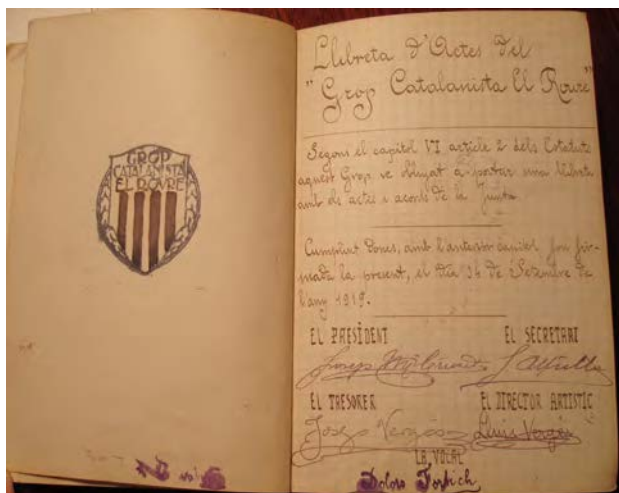 GROP
CATALANISTA
EL ROVRE
Llibreta d'Actes del
"Grop Catalanista El Roure"
Segons el capitol VI article 2 dels Estatuts
aquest Grop ve obligat a portar una llibreta
amb els actes i acords de la Junta
Cumplint dones, amb l'anterior capitol fou fir-
mada la present, el dia 14 de Setembre de
l'any 1919.
EL PRESIDENT
EL SECRETARI
Josep
EL TRESORER
EL DIRECTOR ARTISTIC
Josep Vergés
Lluis Vergés
LA VOCAL
Dolors Fortich